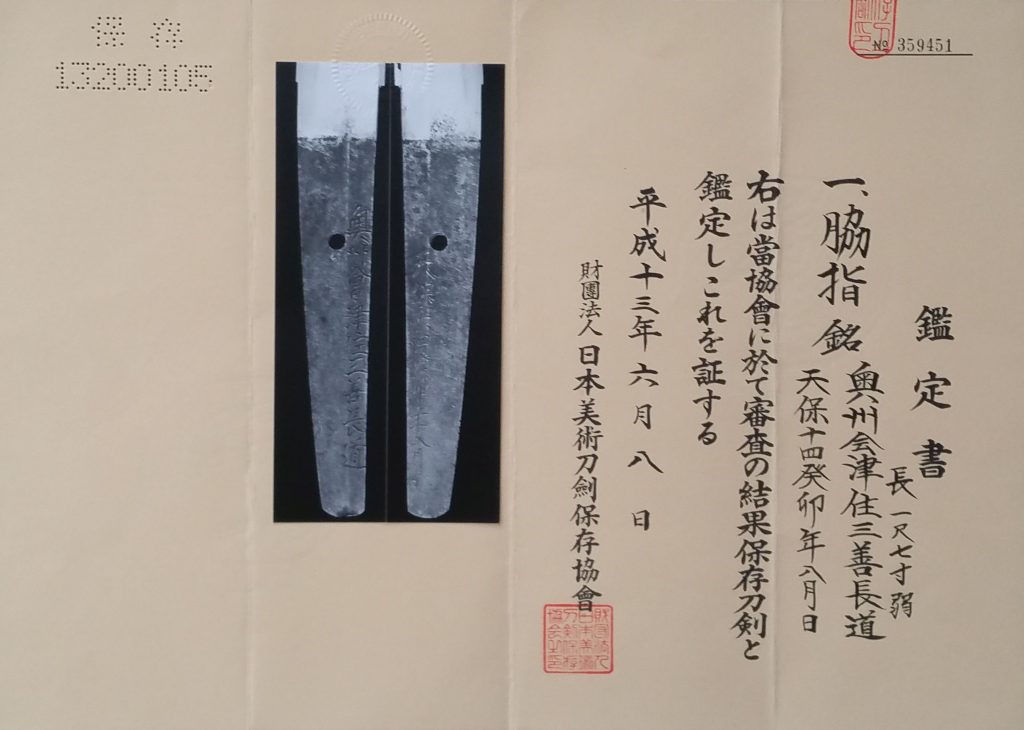 № 359451
鑑定書
一、脇指 銘 奥州会津住三善長道
長一尺七寸弱
天保十四癸卯年八月日
右は當協會に於て審査の結果保存刀剣と
鑑定しこれを証する
平成十三年六月八日
財團法人 日本美術刀劍保存協會
保存
13200105